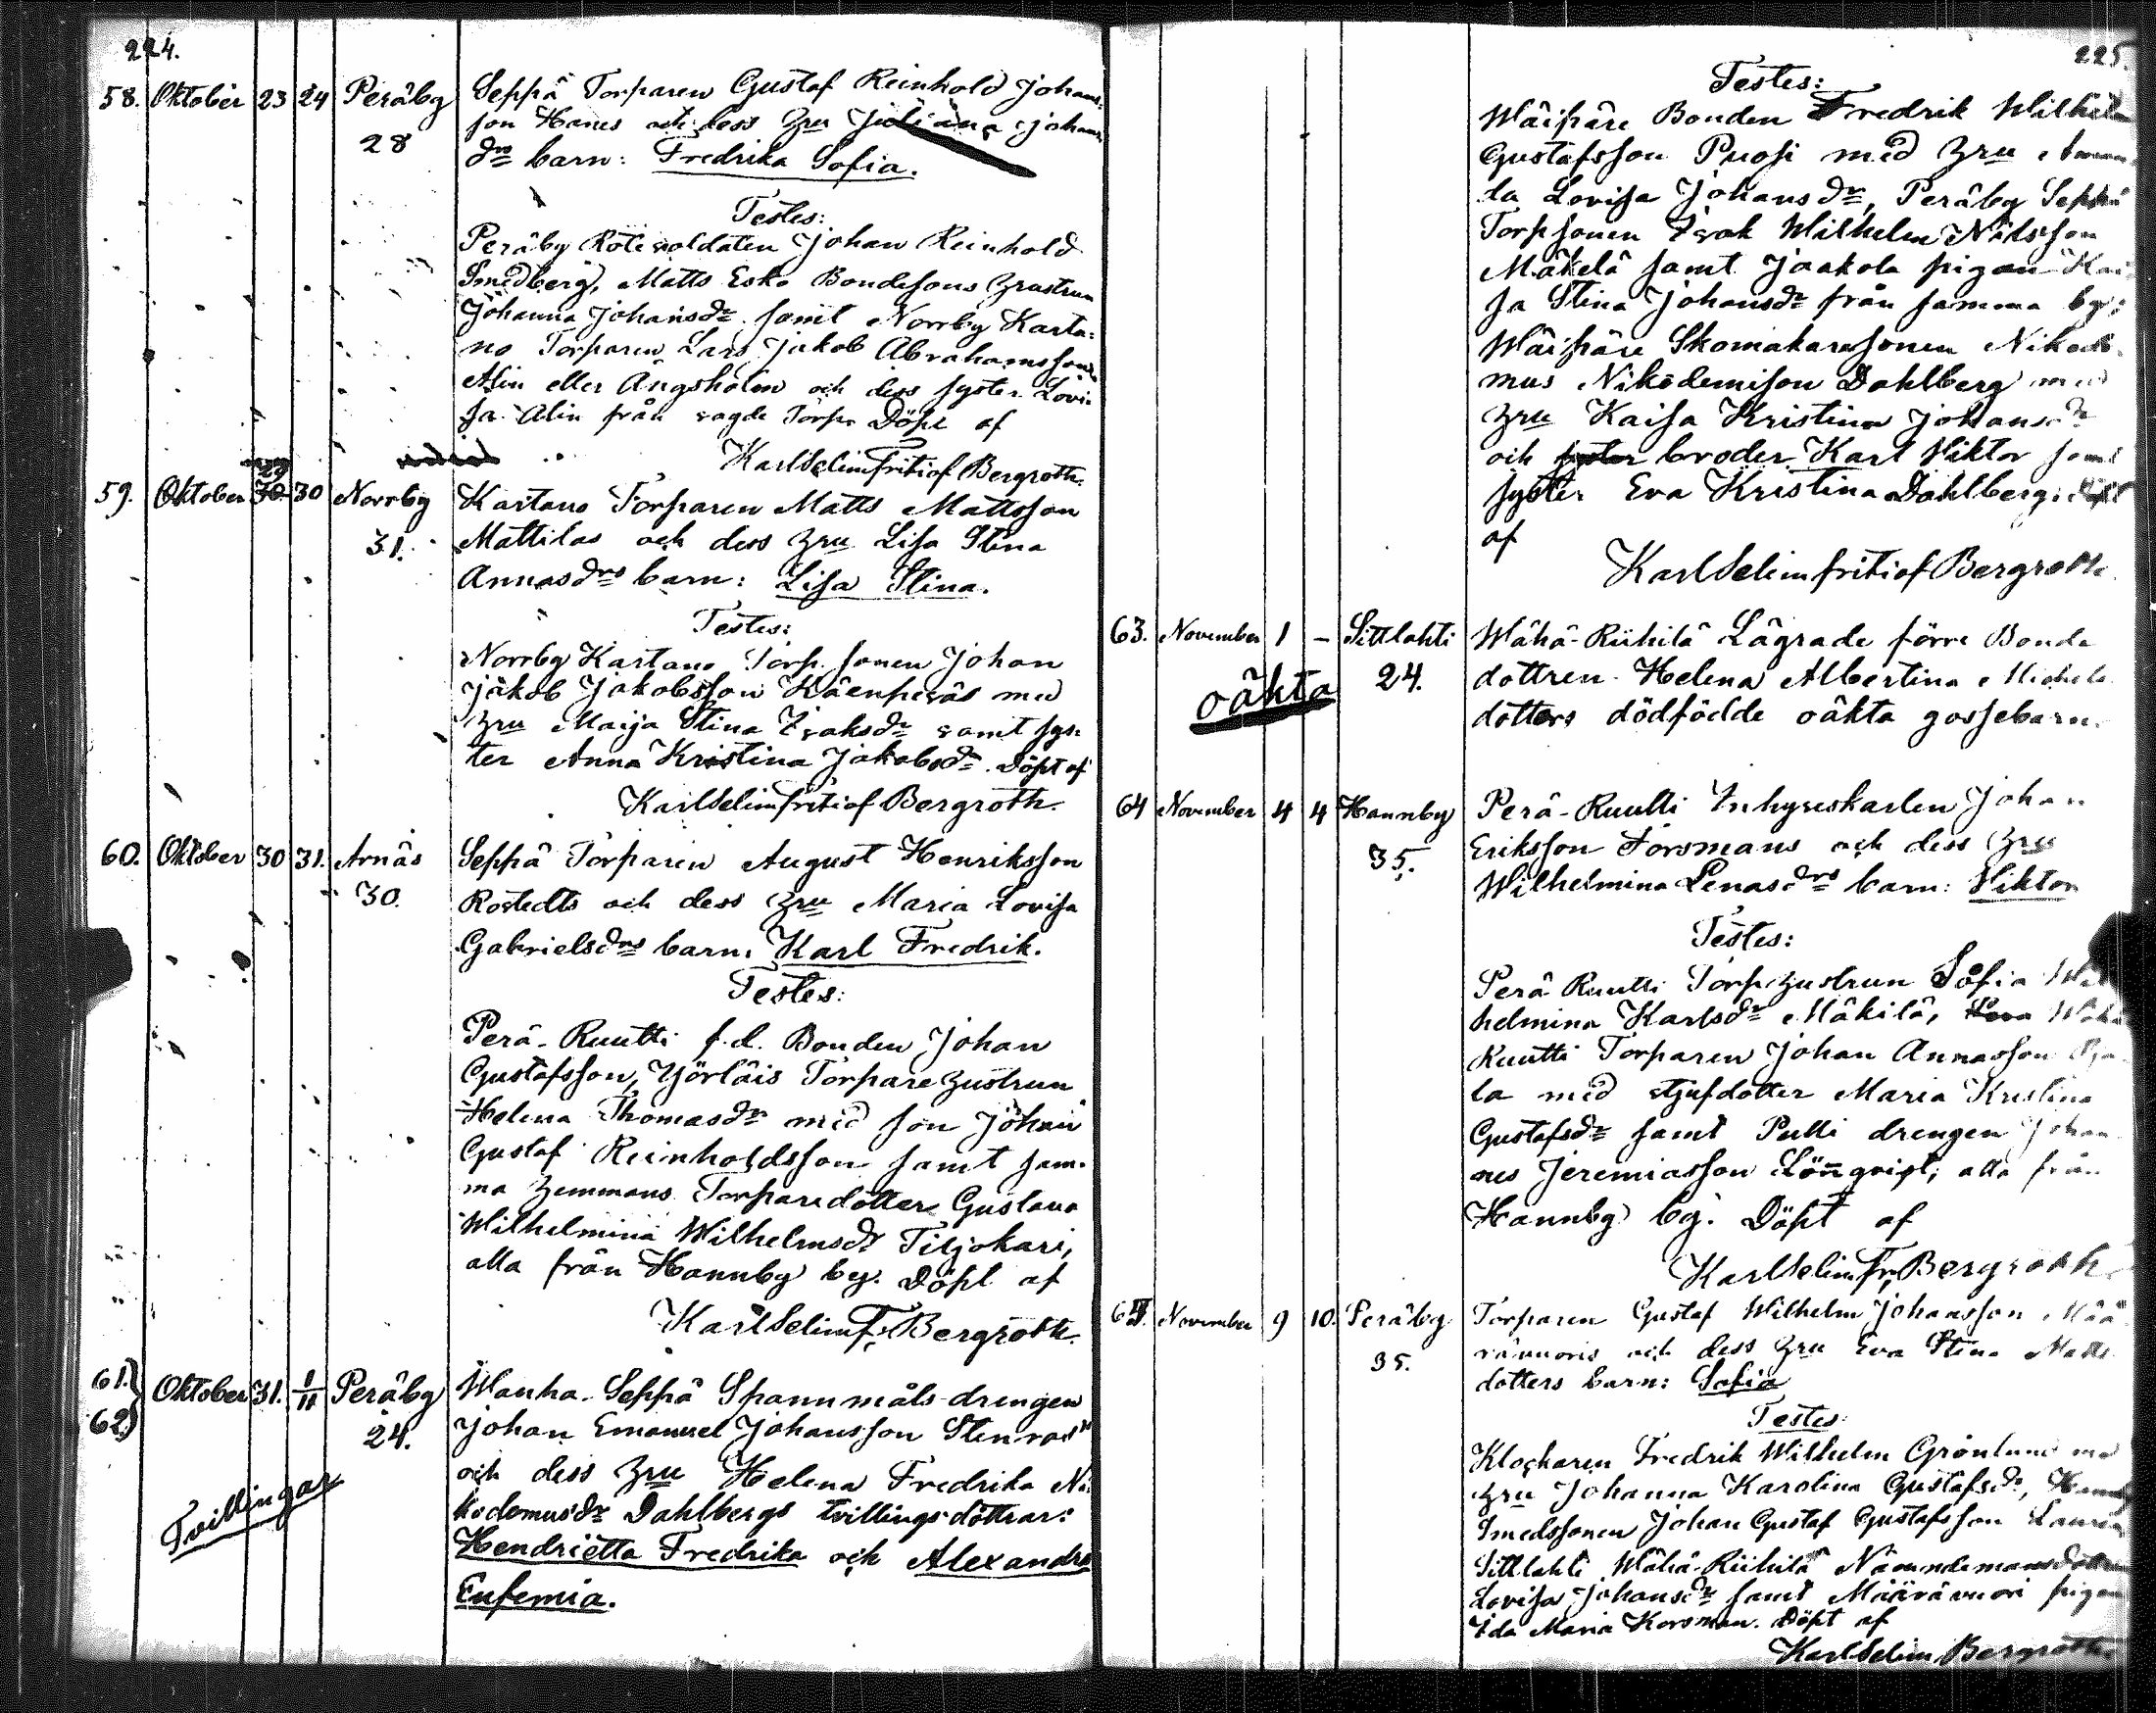 224.
58. Oktober 23 24 Peräby Seppä Torparen Gustaf Reinhold Johans:
28 son Hanes och dess Hru Juliana Johans
drs barn: Fredrika Sofia.
Testes:
Peräby Rotesoldaten Johan Reinhold
Smedberg, Matts Esko Bondesons Hustrun
Johanna Johansdr samt Norrby Karta:
no Torparen Lars Jakob Abrahamsson
Alin eller Ängsholm och dess syster Lovi:
sa Alin från sagde Torp. Döpt af
Karl Selim Fritiof Bergroth.
59. Oktober 29 30 30 Norrby Kartano Torparen Matts Mattsson
31. Mattilas och dess Hru Lisa Stina
Annasdrs barn: Lisa Stina.
Testes:
Norrby Kartano Torp. sonen Johan
Jakob Jakobsson Käenperäs med
Hru Maija Stina Isaksdr samt sys:
ter Anna Kristina Jakobsdr. Döpt af
Karl Selim Fritiof Bergroth.
60. Oktober 30 31. Arnäs Seppä Torparen August Henriksson
30. Rostedts och dess Hru Maria Lovisa
Gabrielsdrs barn: Karl Fredrik.
Testes:
Perä-Ruutti f.d. Bonden Johan
Gustafsson, Yörläis Torpare Hustrun
Helena Thomasdr med son Johan
Gustaf Reinholdsson samt sam:
ma Hemmans Torparedotter Gustava
Wilhelmina Wilhelmsdr Tiljokari,
alla från Hannby by. Döpt af
Karl Selim Fr. Bergroth.
61.) Oktober 31. 1/11 Peräby Wanha-Seppä Spannmåls-drengen
62.) 24. Johan Emanuel Johansson Stenroos
Tvillingar och dess Hru Helena Fredrika Ni:
kodemusdr Dahlbergs tvillings-döttrar:
Hendrietta Fredrika och Alexandra
Eufemia.
225.
Testes:
Wäipäre Bonden Fredrik Wilhelm
Gustafsson Puosi med Hru
da Lovisa Johansdr, Peräby Seppä
Torpsonen Isak Wilhelm Nilsson
Mäkelä samt Jaakola pigan Kai
sa Stina Johansdr från samma by;
Wäipäre Skomakaresonen Nikode
mus Nikodemison Dahlberg med
Hru Kaisa Kristina Johansdr
och syster broder Karl Viktor samt
syster Eva Kristina Dahlberg. Döpt
af
Karl Selim Fritiof Bergroth.
63. November 1 - Sittlahti Wähä-Riihilä Lägrade förre Bonde
oäkta 24. dottren Helena Albertina Michels
dotters dödfödde oäkta gossebarn.
64 November 4 4 Hannby Perä-Ruutti Inhyseskarlen Johan
35. Eriksson Forsmans och dess Hru
Wilhelmina Lenasdrs barn: Viktor
Testes:
Perä Ruutti Torp.hustrun Sofia Wil
helmina Karlsdr Mäkilä, Wähä
Ruutti Torparen Johan Annasson
la med styfdotter Maria Kristina
Gustafsdr samt Putti drengen Johan
nes Jeremiasson Lönnqvist; alla från
Hannby by. Döpt af
Karl Selim Fr. Bergroth.
65. November 9 10. Peräby Torparen Gustaf Wilhelm Johansson Mää
35. rävuoris och dess Hru Eva Stina Matts
dotters barn: Sofia
Testes:
Klockaren Fredrik Wilhelm Grönlund med
Hru Johanna Karolina Gustafsdr, Hannby
Smedssonen Johan Gustaf Gustafsson
Sittlahti Wähä-Riihilä Nämndemansdottren
Lovisa Johansdr samt Määrävuori pigan
Ida Maria Korsman. Döpt af
Karl Selim Bergroth.